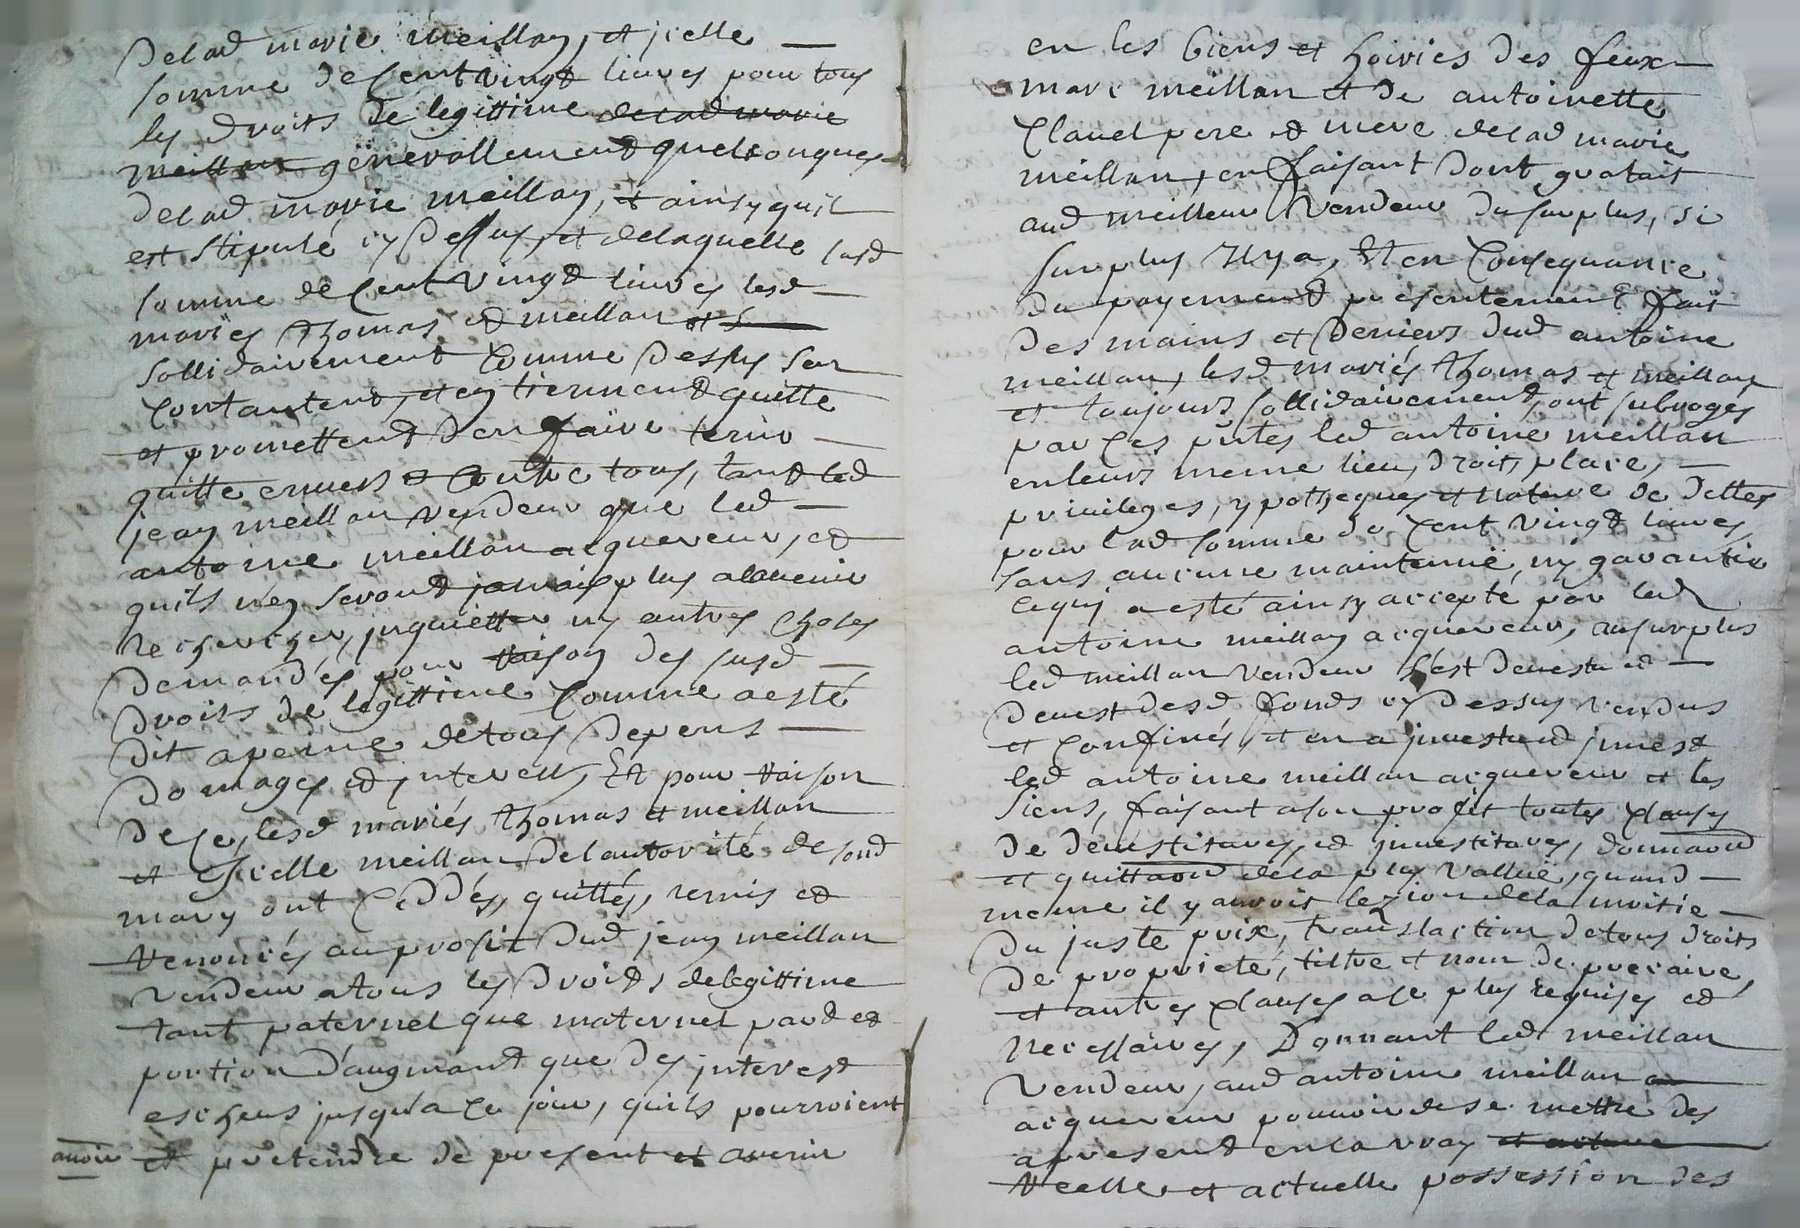 delad marie meillan, et jcelle
somme de Cent vingt livres pour tous
les droits de legittime delad marie
meillan generallement quelconques
delad marie meillan, et ainsy quil
est stipulé cy dessus, et delaquelle susd
somme de Cent vingt livres lesd
mariés thomas et meillan et
sollidairement Comme dessus sen
Contantent, et en tiennent quitte
et promettent den faire tenir
quitte envers et Contre tous, tant led
jean meillan vendeur que led
antoine meillan acquereur, et
quils ney seront jamais plus alavenir
recherchés, jnquietter ny autres choses
demandés pour raison des susd
droits de legittime Comme a esté
dit a peine de tous depens
domages et jnterests, Et pour raison
de Ce, lesd mariés thomas et meillan
et jcelle meillan de lautorité de sond
mary ont Ceddés, quittés, remis et
renoncés au profit dud jean meillan
vendeur atous les droits delegittime
tant paternel que maternel part et
portion d'augmant que des jnterest
escheus jusqu'a Ce jour, quils pourroient
avoir et pretendre de present et avenir
en les biens et hoiries des feux
marc meillan et de antoinette
Clauel pere et mere delad marie
meillan, en faisant dont gratait
aud meilleur vendeur du surplus, si
surplus Ily a, Et en Consequance
du payement presentement fait
des mains et deniers dud antoine
meillan, lesd mariés thomas et meillan
et toujours sollidairement, ont subrogés
par Ces pntes led antoine meillan
en leurs meme lieu, droit, place,
privileges, ypotheques et nature de dettes
pour lad somme de Cent vingt livres
sans aucune maintenüe, ny garantie
Cequi a esté ainsy accepté par led
antoine meillan acquereur, au surplus
led meillan vendeur s'est devestu et
devest desd fonds cy dessus vendus
et Confinés, et en a jnvestu et jnvest
led antoine meillan acquereur et les
siens, faisant a son profit toutes Clauses
de devestitures, et jnvestitures, donnaond
et quittaond dela plus vallüe, quand
meme il y auroit lezion dela moitie
du juste prix, translaction de tous droits
de proprieté, tiltre et nom de precaire,
et autres Clauses a Ce plus requises et
necessaires, Donnant led meillan
vendeur, aud antoine meillan
acquereur pouvoir de se mettre des
apresent en la vray et actuve
reelle et actuelle possession des